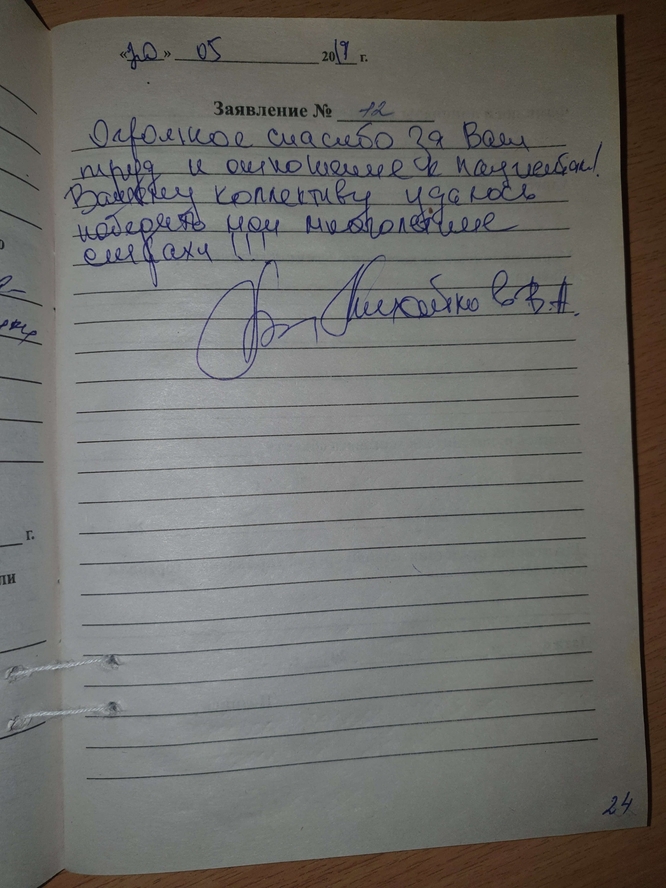 «20» 05 2019 г.
Заявление № 12
Огромное спасибо за Ваш
труд и отношение к пациентам!
Вашему коллективу удалось
победить мои многолетние
страхи !!!
В.А.
г.
24